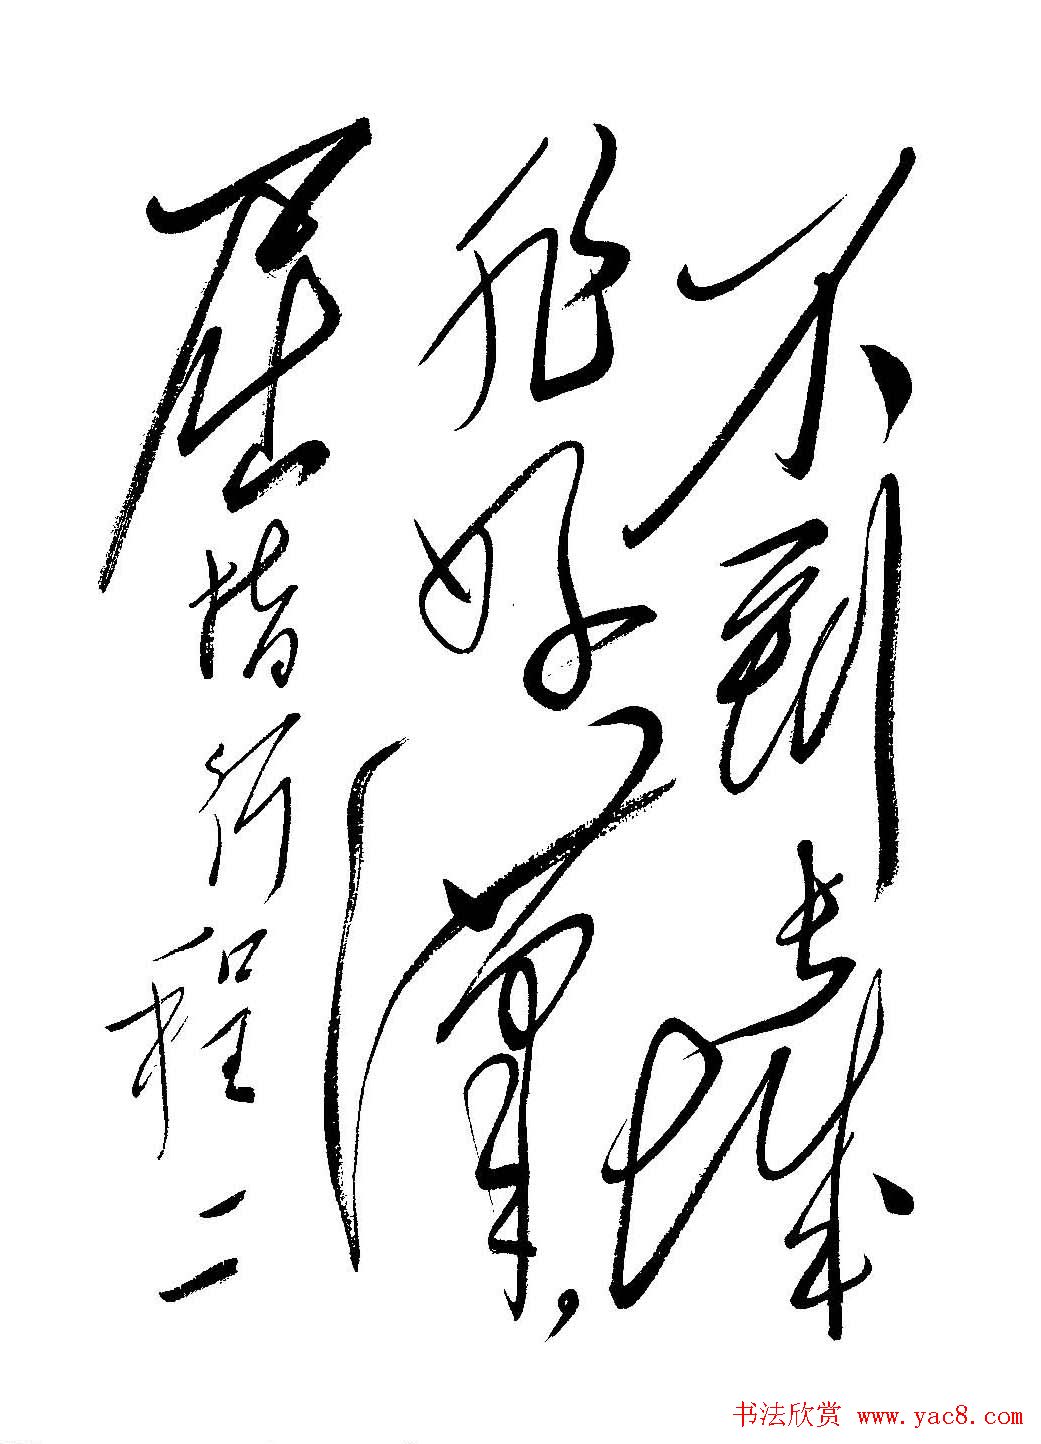 不到长城
非好汉，
屈指行程二
书法欣赏 www.yac8.com